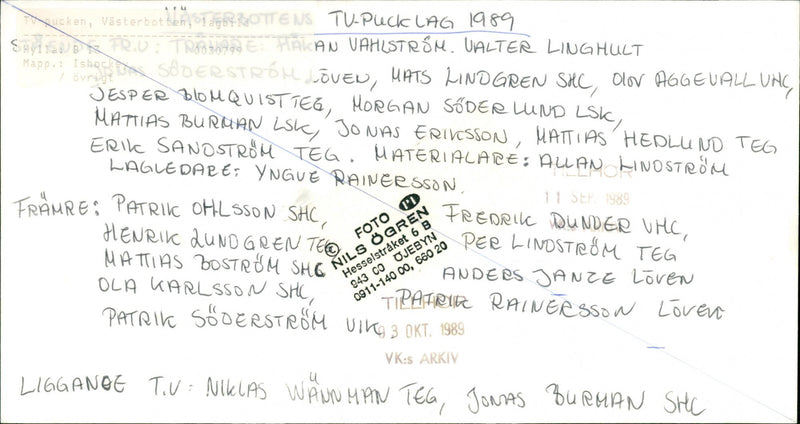 VÄSTERBOTTENS TV-PUCKLAG 1989
TV-pucken, Västerbotten, lagbild
Hylla: B
Mapp.: Ishockey
/ övrigt
STÅENDE FR.V: TRÄNARE: HÅKAN VAHLSTRÖM. VALTER LINGHULT
JONAS SÖDERSTRÖM LÖVEN, MATS LINDGREN SHC, OLOV AGGEVALL VHC,
JESPER BLOMQUIST TEG, MORGAN SÖDERLUND LSK,
MATTIAS BURMAN LSK, JONAS ERIKSSON, MATTIAS HEDLUND TEG
ERIK SANDSTRÖM TEG. MATERIALARE: ALLAN LINDSTRÖM
LAGLEDARE: YNGVE RAINERSSON.
TILLHÖR
11 SEP. 1989
FRÄMRE: PATRIK OHLSSON SHC,
HENRIK LUNDGREN TEG
MATTIAS BOSTRÖM SHC
OLA KARLSSON SHC,
PATRIK SÖDERSTRÖM VIK,
FOTO PI
© NILS ÖGREN
Hesselstråket 6 B
943 00 ÖJEBYN
0911-140 00, 660 20
FREDRIK DUNDER VHC,
PER LINDSTRÖM TEG
ANDERS JANZE LÖVEN
PATRIK RAINERSSON LÖVEN
TILLHÖR
03 OKT. 1989
VK:s ARKIV
LIGGANDE T.V: NIKLAS WÄNNMAN TEG, JONAS BURMAN SHC